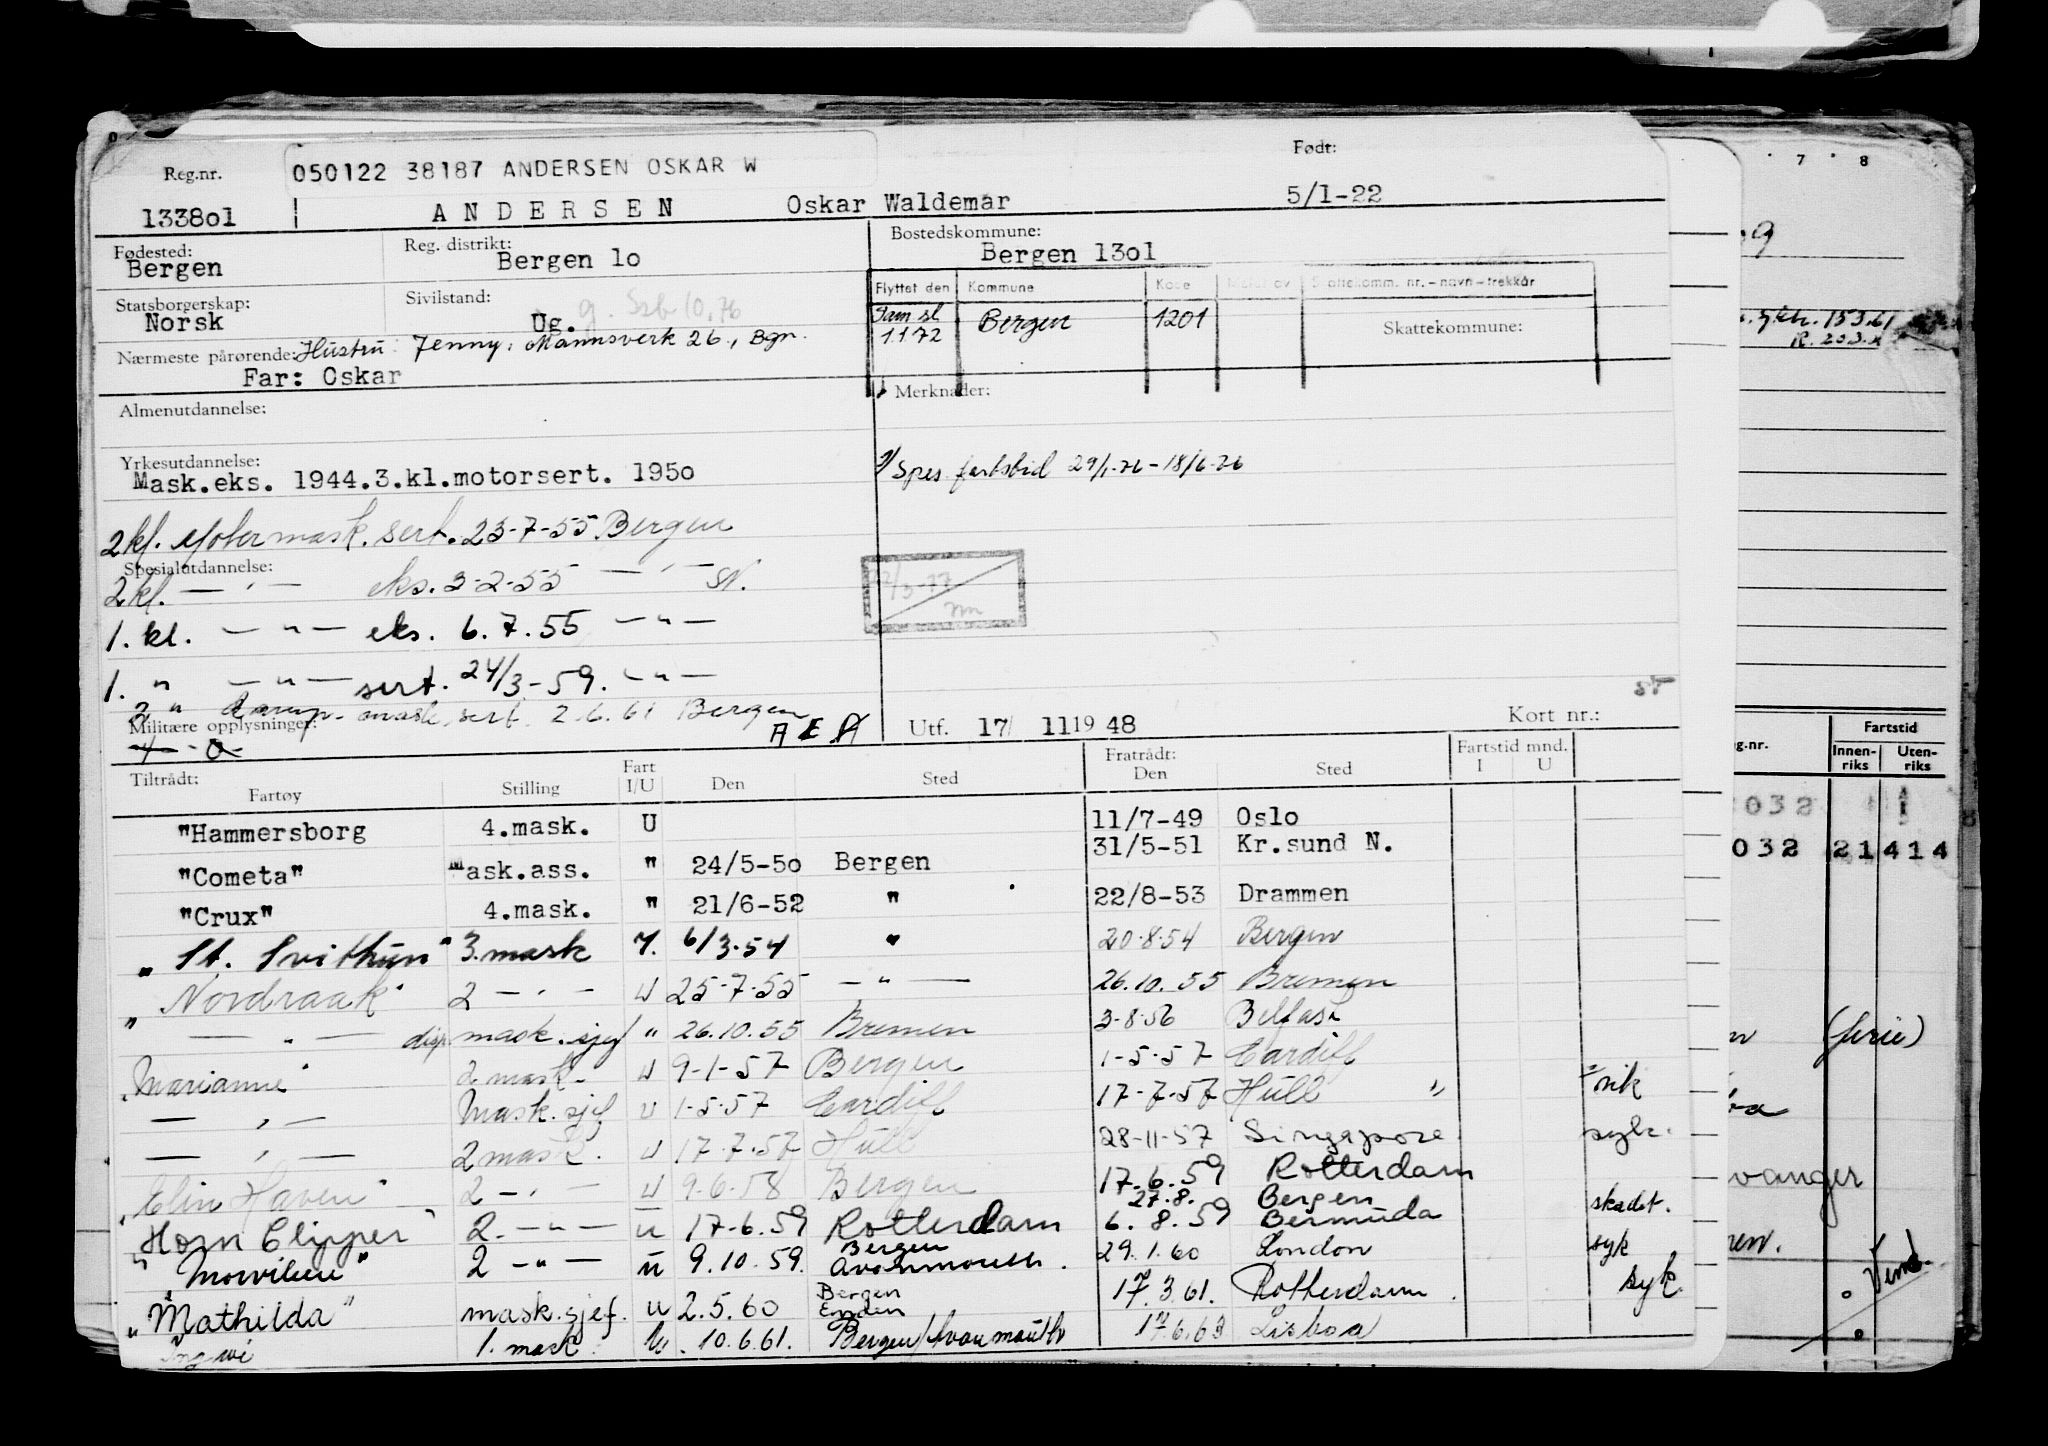 Reg.nr. 050122 38187 ANDERSEN OSKAR W Født:
133801 ANDERSEN Oskar Waldemar 5/1-22
Fødested: Bergen Reg. distrikt: Bergen 10 Bostedskommune: Bergen 1301
Flyttet den Kommune Kode
Statsborgerskap: Norsk Sivilstand: Ug. g. 10.76
Sam sl 1172 Bergen 1201 Skattekommune:
Nærmeste pårørende: Hustru: Jenny, Mannsverk 26, Bgn.
Far: Oskar
Almenutdannelse: Merknader:
Yrkesutdannelse:
Mask.eks. 1944.3.kl.motorsert. 1950
Spes. fartstid 29/1-76 - 18/6-76
2 kl. Motormask. sert. 23-7-55 Bergen
Spesialutdannelse:
2 kl. — " — eks. 3-2-55 — " —
/3-77
1. kl. — " — eks. 6.7.55 — " —
1. " — " — sert. 24/3-59. — " —
55
2 " mask. sert. 2.6.61 Bergen
Militære opplysninger: Utf. 17/ 11 19 48 Kort nr.:
Tiltrådt: Fratrådt: Fartstid mnd.
Fartøy Stilling Fart I/U Den Sted Den Sted I U
"Hammersborg 4.mask. U 11/7-49 Oslo
"Cometa" Mask.ass. " 24/5-50 Bergen 31/5-51 Kr.sund N.
"Crux" 4.mask. " 21/6-52 " 22/8-53 Drammen
"St. Svithun" 3.mask 6/3.54 " 20.8.54 Bergen
"Nordraak" 2 — " — U 25-7-55 — " — 26.10.55 Bremen
— " — disp mask.sjef " 26.10.55 Bremen 3-8-56 Belfast
"Marianne" 2 mask. U 9-1-57 Bergen 1-5-57 Cardiff
— " — Mask.sjef U 1-5-57 Cardiff 17-7-57 Hull "
— " — 2 mask. U 17.7.57 Hull 28-11-57 Singapore syk.
"Elin Haven" 2 — " — U 9.6.58 Bergen 17.6.59 Rotterdam
"Horn Clipper" 2. — " — U 17-6.59 Rotterdam 27.8. Bergen
6.8.59 Bermuda skadet.
2 — " — U 9.10.59. Bergen Avonmouth. 29.1.60 London syk
"Mathilda" mask.sjef. U 2.5.60 Bergen Emden 17.3.61. Rotterdam. syk.
1. mask. U. 10.6.61. Bergen/Avonmouth 17.6.63 Lisboa
7 8
Fartstid
g.nr. Innen-riks Uten-riks
032
032 21 414
(ferie)
vanger